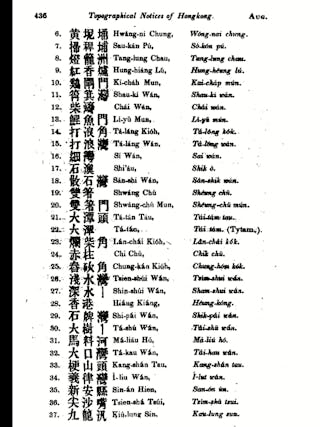 436 Topographical Notices of Hongkong. Aug.
6. 黃坭涌 Hwáng-ní Chung, Wóng-nai chung.
7. 掃稈埔 Sau-kán Pú, Só-kón pú.
8. 燈籠洲 Tang-lung Chau, Tang-lung chau.
9. 紅香爐 Hung-hiáng Lú, Hung-héung lú.
10. 門 Kí-cháh Mun, Kai-cháp mún.
11. 筲箕灣 Shau-ki Wán, Shau-ki wán.
12. 柴灣 Chái Wán, Chái wán.
13. 鯉魚門 Lí-yü Mun, Lí-yü mún.
14. 打浪角 Tá-láng Kióh, Tá-lóng kók.
15. 打浪灣 Tá-láng Wán, Tá-lóng wán.
16. 細灣 Sí Wán, Sai wán.
17. 石澳 Shí'áu, Shik ò.
18. 散石灣 Sán-shí Wán, Sán-shik wán.
19. 雙箸 Shwáng Chú Shéung chü.
20. 雙箸門 Shwáng-chü Mun, Shéung-chü mún.
21. 大潭頭 Tá-tán Táu, Tái-tám tau.
22. 大潭 Tá-tán, Tái tám. (Tytam.).
23. 爛柴角 Lán-chái Kióh, Lán-chái kók.
24. 赤柱 Chi Chú, Chik chü.
25. 舂磡角 Chung-kán Kióh, Chung-hóm kók.
26. 淺水灣 Tsien-shúi Wán, Tsin-shui wán.
27. 深水灣 Shin-shúi Wán, Sham-shui wán.
28. 香港 Hiáng Kiáng, Héung-kóng.
29. 石牌灣 Shí-pái Wán, Shik-pái wán.
30. 大樹灣 Tá-shú Wán, Tái-shü wán.
31. 馬料河 Má-liáu Hó, Má-liú hó.
32. 大口灣 Tá-kau Wán, Tái-hau wán.
33. 山頭 Kang-shán Tau, Kang-shán tau.
34. 義律灣 Í-liu Wán, Í-lut wán.
35. 新安縣 Sin-án Hien, San-ón ün.
36. 尖沙嘴 Tsien-shá Tsúi, Tsim-shá tsui.
37. 九龍汛 Kiú-lung Sin, Kau-lung sun.